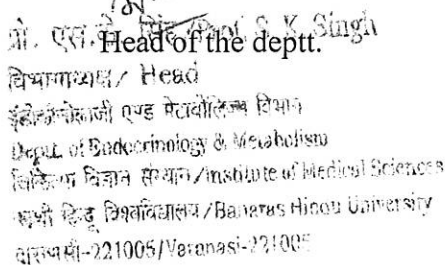 प्रो. एस.के. सिंह/Prof. S. K. Singh
Head of the deptt.
विभागाध्यक्ष/ Head
इंडोक्रोनोलाजी एण्ड मेटाबोलिज्म विभाग
Deptt. of Endocrinology & Metabolism
चिकित्सा विज्ञान संस्थान/Institute of Medical Sciences
काशी हिन्दू विश्वविद्यालय/Banaras Hindu University
वाराणसी-221005/Varanasi-221005